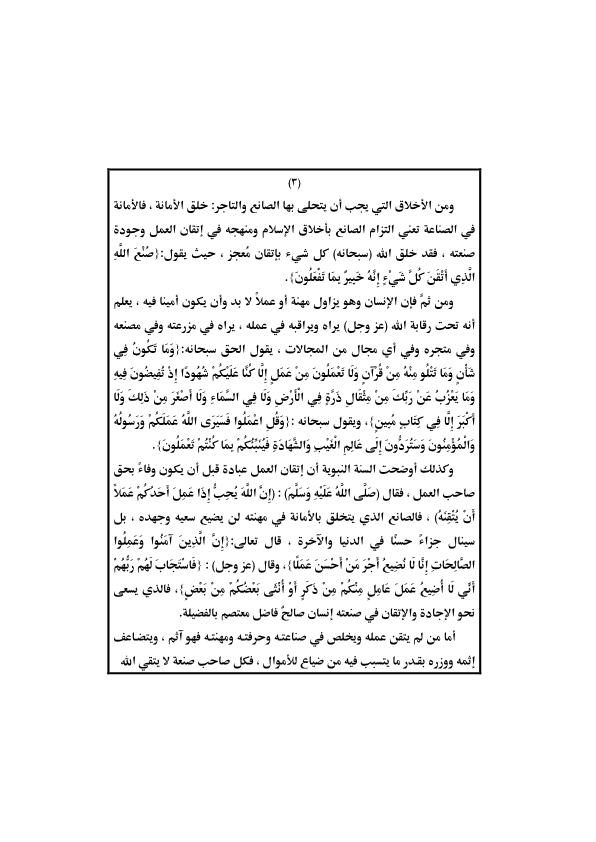 (٣)
ومن الأخلاق التي يجب أن يتحلى بها الصانع والتاجر: خلق الأمانة ، فالأمانة
في الصناعة تعني التزام الصانع بأخلاق الإسلام ومنهجه في إتقان العمل وجودة
صنعته ، فقد خلق الله (سبحانه) كل شيء بإتقان مُعجز ، حيث يقول:{صُنْعَ اللَّهِ
الَّذِي أَتْقَنَ كُلَّ شَيْءٍ إِنَّهُ خَبِيرٌ بِمَا تَفْعَلُونَ}.
ومن ثمَّ فإن الإنسان وهو يزاول مهنة أو عملاً لا بد وأن يكون أمينا فيه ، يعلم
أنه تحت رقابة الله (عز وجل) يراه ويراقبه في عمله ، يراه في مزرعته وفي مصنعه
وفي متجره وفي أي مجال من المجالات ، يقول الحق سبحانه:{وَمَا تَكُونُ فِي
شَأْنٍ وَمَا تَتْلُو مِنْهُ مِنْ قُرْآنٍ وَلَا تَعْمَلُونَ مِنْ عَمَلٍ إِلَّا كُنَّا عَلَيْكُمْ شُهُودًا إِذْ تُفِيضُونَ فِيهِ
وَمَا يَعْزُبُ عَنْ رَبِّكَ مِنْ مِثْقَالِ ذَرَّةٍ فِي الْأَرْضِ وَلَا فِي السَّمَاءِ وَلَا أَصْغَرَ مِنْ ذَلِكَ وَلَا
أَكْبَرَ إِلَّا فِي كِتَابٍ مُبِينٍ}، ويقول سبحانه :{وَقُلِ اعْمَلُوا فَسَيَرَى اللَّهُ عَمَلَكُمْ وَرَسُولُهُ
وَالْمُؤْمِنُونَ وَسَتُرَدُّونَ إِلَى عَالِمِ الْغَيْبِ وَالشَّهَادَةِ فَيُنَبِّئُكُمْ بِمَا كُنْتُمْ تَعْمَلُونَ}.
وكذلك أوضحت السنة النبوية أن إتقان العمل عبادة قبل أن يكون وفاءً بحق
صاحب العمل ، فقال (صَلَّى اللَّهُ عَلَيْهِ وَسَلَّمَ) : (إِنَّ اللَّهَ يُحِبُّ إِذَا عَمِلَ أَحَدُكُمْ عَمَلاً
أَنْ يُتْقِنَهُ) ، فالصانع الذي يتخلق بالأمانة في مهنته لن يضيع سعيه وجهده ، بل
سينال جزاءً حسنًا في الدنيا والآخرة ، قال تعالى:{إِنَّ الَّذِينَ آمَنُوا وَعَمِلُوا
الصَّالِحَاتِ إِنَّا لَا نُضِيعُ أَجْرَ مَنْ أَحْسَنَ عَمَلًا}، وقال (عز وجل) : {فَاسْتَجَابَ لَهُمْ رَبُّهُمْ
أَنِّي لَا أُضِيعُ عَمَلَ عَامِلٍ مِنْكُمْ مِنْ ذَكَرٍ أَوْ أُنْثَى بَعْضُكُمْ مِنْ بَعْضٍ}، فالذي يسعى
نحو الإجادة والإتقان في صنعته إنسان صالحٌ فاضل معتصم بالفضيلة.
أما من لم يتقن عمله ويخلص في صناعته وحرفته ومهنته فهو آثم ، ويتضاعف
إثمه ووزره بقدر ما يتسبب فيه من ضياع للأموال ، فكل صاحب صنعة لا يتقي الله